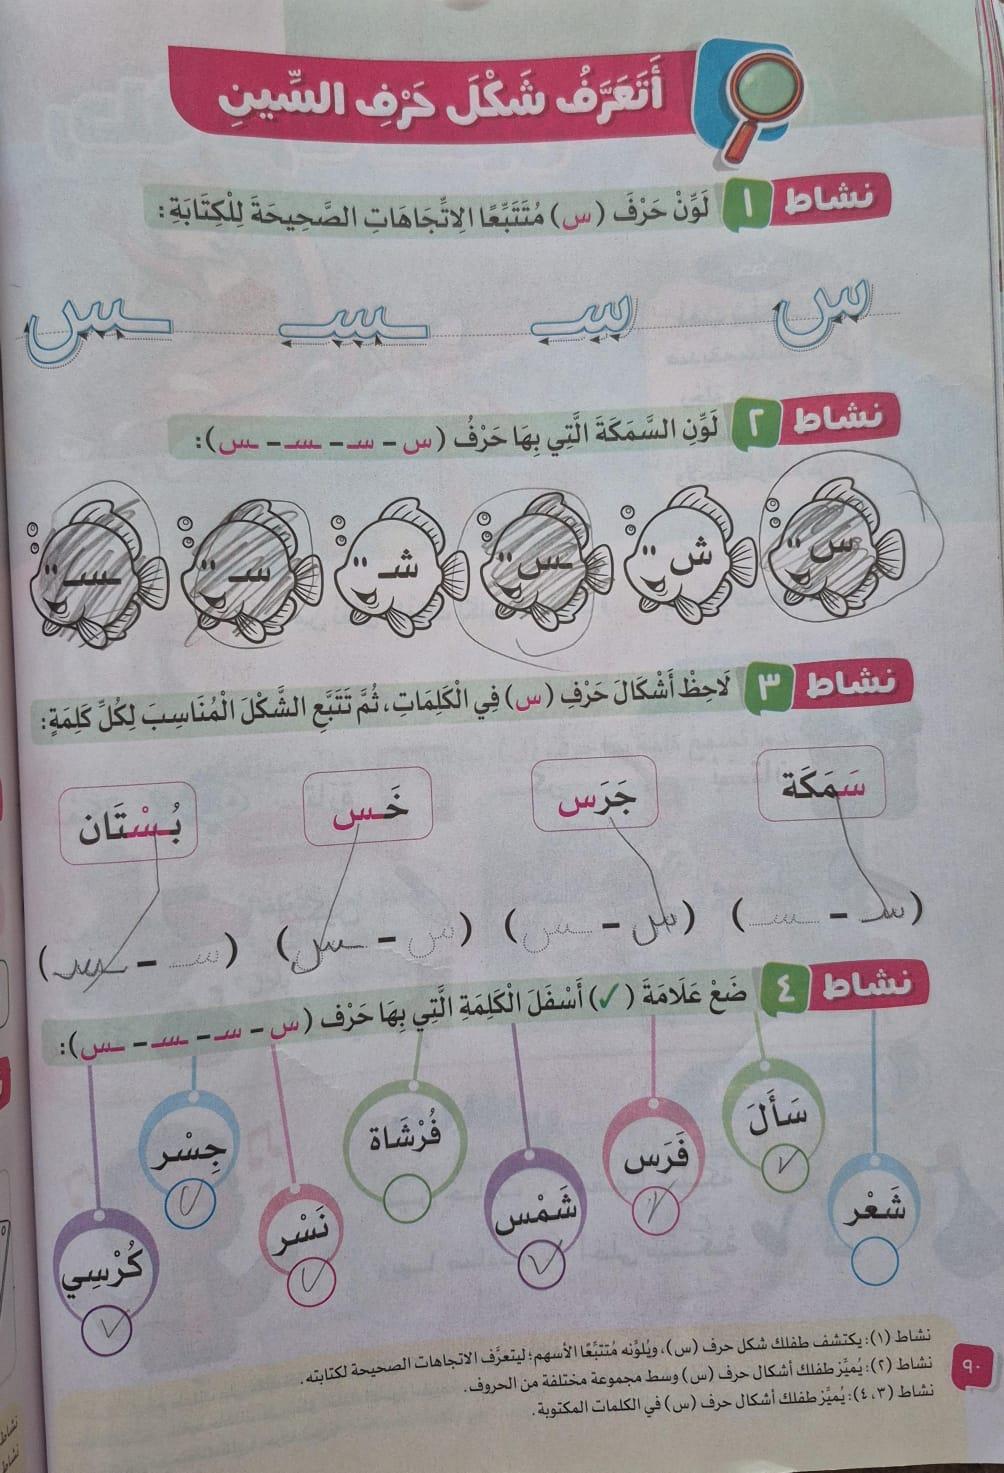 أَتَعَرَّفُ شَكْلَ حَرْفِ السِّينِ
نشاط ١ لَوِّنْ حَرْفَ (س) مُتَتَبِّعًا الِاتِّجَاهَاتِ الصَّحِيحَةَ لِلْكِتَابَةِ:
س سـ ـسـ ـس
نشاط ٢ لَوِّنِ السَّمَكَةَ الَّتِي بِهَا حَرْفُ (س - سـ - ـسـ - ـس):
س ش ـس شـ سـ ـسـ
نشاط ٣ لَاحِظْ أَشْكَالَ حَرْفِ (س) فِي الْكَلِمَاتِ، ثُمَّ تَتَبَّعِ الشَّكْلَ الْمُنَاسِبَ لِكُلِّ كَلِمَةٍ:
سَمَكَة جَرَس خَس بُسْتَان
(سـ - ـسـ) (س - ـس) (س - ـس) (سـ - ـسـ)
نشاط ٤ ضَعْ عَلَامَةَ (✓) أَسْفَلَ الْكَلِمَةِ الَّتِي بِهَا حَرْف (س - سـ - ـسـ - ـس):
شَعْر سَأَلَ فَرَس شَمْس فُرْشَاة نَسْر جِسْر كُرْسِي
نشاط (١): يكتشف طفلك شكل حرف (س)، ويُلوِّنه مُتتبِّعًا الأسهم؛ ليتعرَّف الاتجاهات الصحيحة لكتابته.
نشاط (٢): يُميِّز طفلك أشكال حرف (س) وسط مجموعة مختلفة من الحروف.
نشاط (٣، ٤): يُميِّز طفلك أشكال حرف (س) في الكلمات المكتوبة.
٩٠